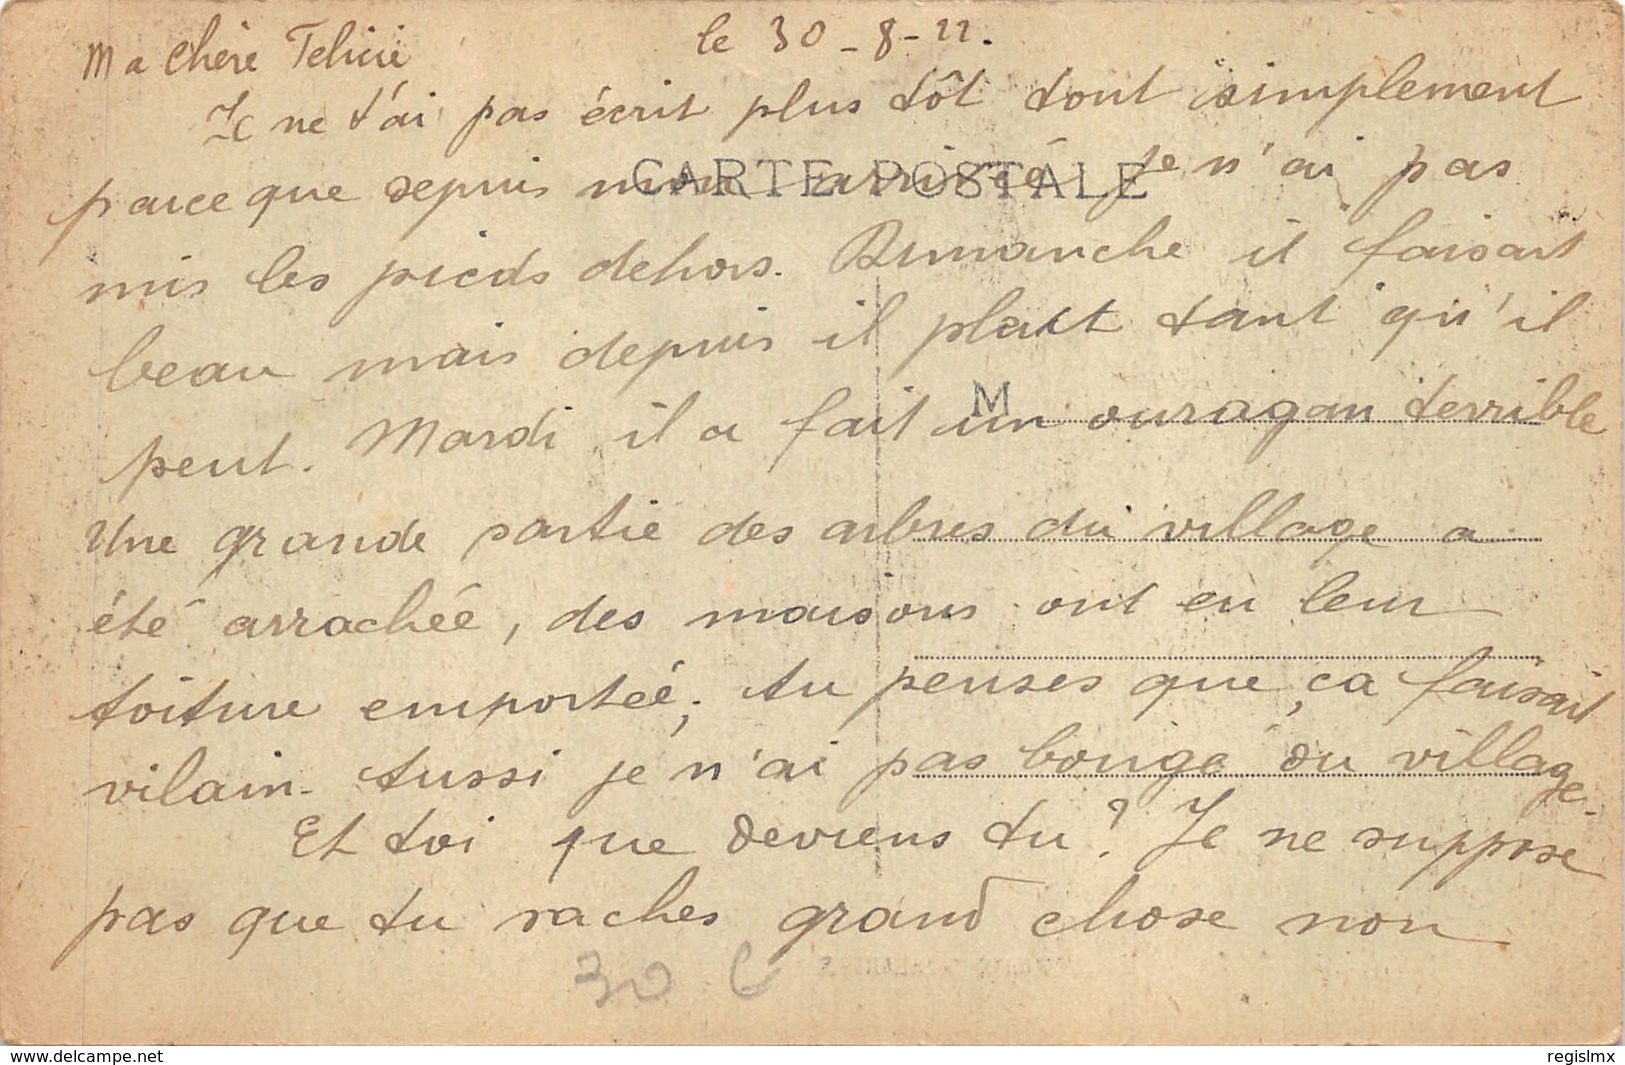 Ma chère Félicie le 30-8-22.
Je ne t'ai pas écrit plus tôt tout simplement
CARTE POSTALE
parce que depuis mon arrivée je n'ai pas
mis les pieds dehors. Dimanche il faisait
beau mais depuis il plait tant qu'il
M
peut. Mardi il a fait un ouragan terrible
Une grande partie des arbres du village a
été arrachée, des maisons ont eu leur
toiture emportée; tu penses que ça faisait
vilain. Aussi je n'ai pas bougé du village.
Et toi que deviens tu? Je ne suppose
pas que tu saches grand chose non
30
www.delcampe.net
regislmx